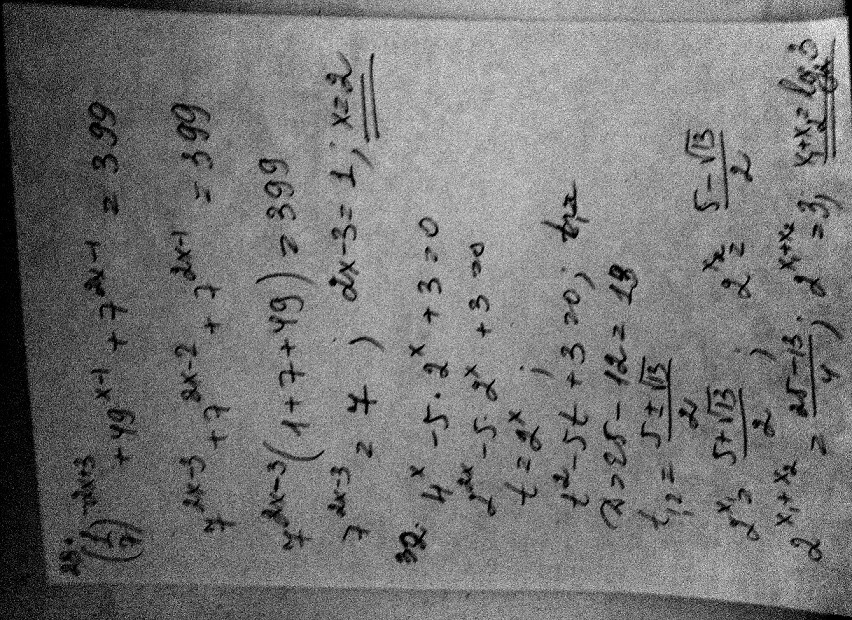 28.
(1/7)^{-2x+3} + 49^{x-1} + 7^{2x-1} = 399
7^{2x-3} + 7^{2x-2} + 7^{2x-1} = 399
7^{2x-3}(1+7+49) = 399
7^{2x-3} = 7, 2x-3 = 1, x=2
32. 4^x - 5·2^x + 3 = 0
2^{2x} - 5·2^x + 3 = 0
t = 2^x,
t^2 - 5t + 3 = 0,
D = 25 - 12 = 13
t_{1,2} = (5±√13)/2
2^{x_1} = (5+√13)/2, 2^{x_2} = (5-√13)/2
2^{x_1+x_2} = (25-13)/4, 2^{x_1+x_2} = 3, x_1+x_2 = log_2 3